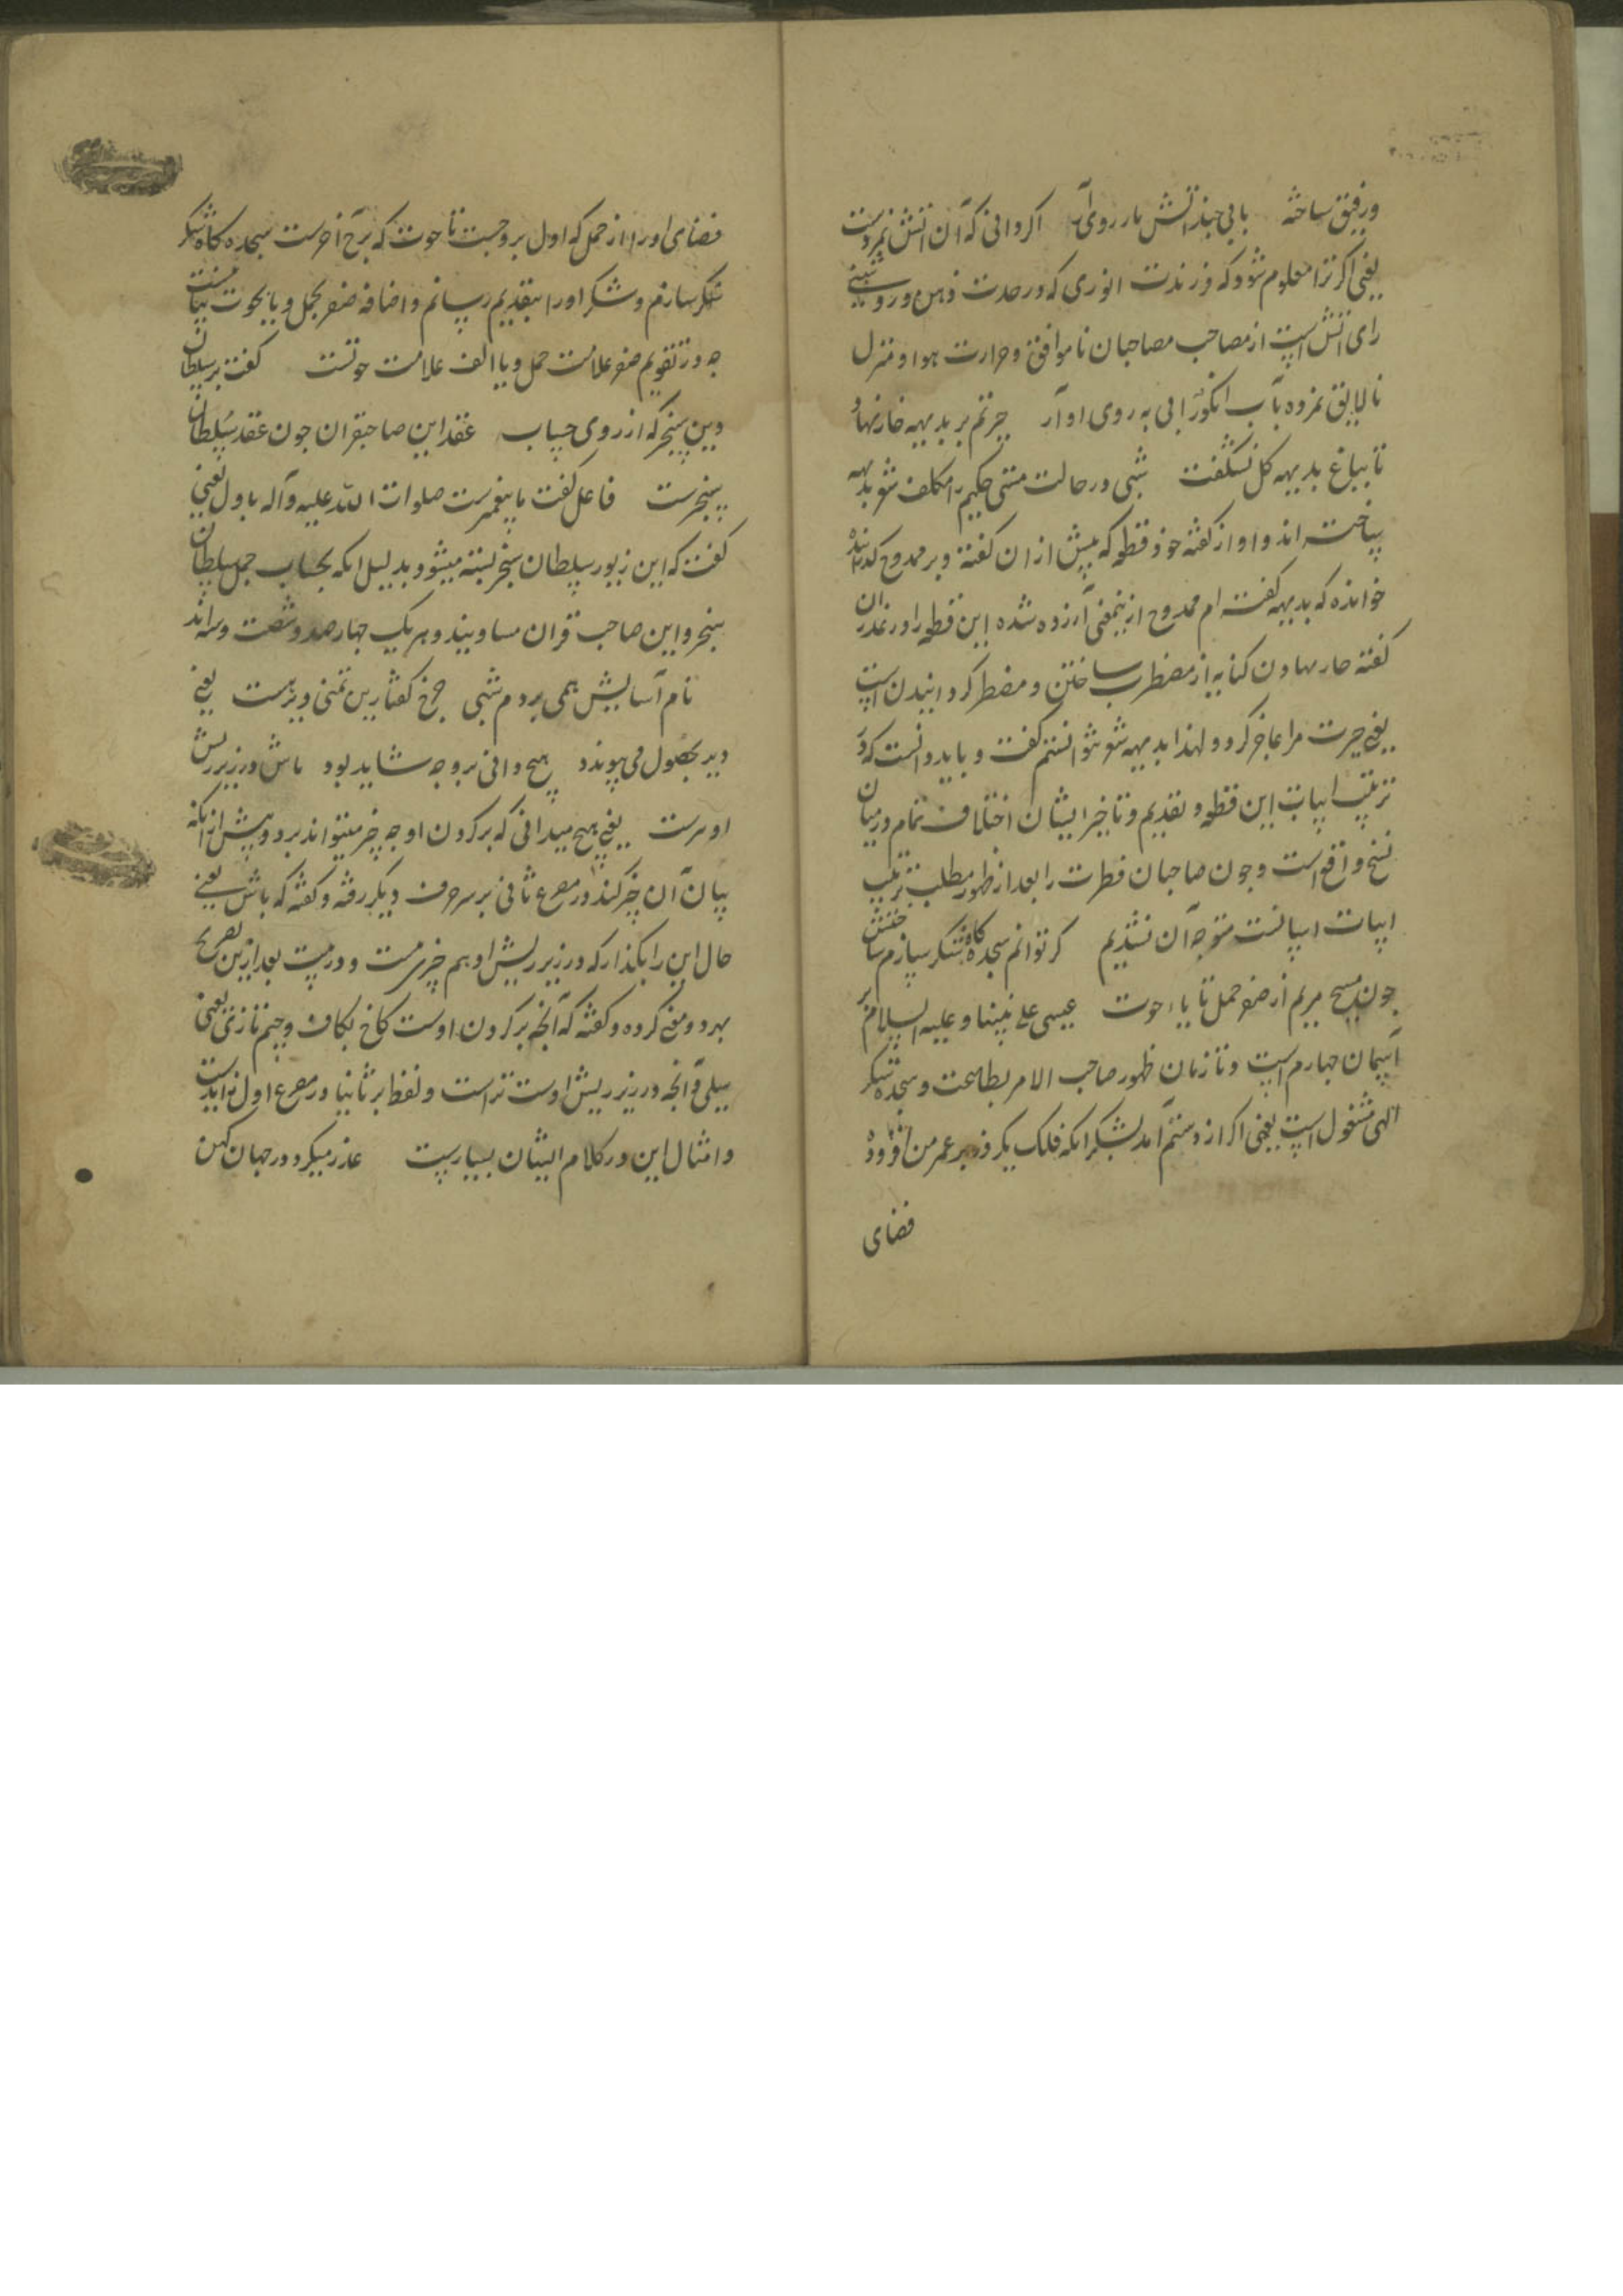 ورفیق ساخته بابی چند آتش بار روی آر اکر دانی که آن آتش نمرودست
یعنی اکر ترا معلوم شود که فرزندت انوری که در حدت ذهن و روشنی
رای آتش است از مصاحب مصاحبان ناموافق و حرارت هوا و منزل
نالایق نمرده بآب انکور آبی به روی او آر حیرتم بر بدیهه خار نهاد
تا بباغ بدیهه کل نشکفت شبی در حالت مستی حکیم را مکلف شعر بدیهه
ساخته اند و او از کفته خود قطعه که پیش از ان کفته و بر ممدوح کذرانیده
خوانده که بدیهه کفته ام ممدوح از ینمعنی آزرده شده این قطعه را در عذر ان
کفته خار نهادن کنایه از مضطرب ساختن و مضطر کردانیدن است
یعنی حیرت مرا عاجز کرد و لهذا بدیهه شعر نتوانستم کفت و باید دانست که در
ترتیب ابیات این قطعه و تقدیم و تاخیر ایشان اختلاف تمام در میان
نسخ واقع است و چون صاحبان فطرت را بعد از ظهور مطلب ترتیب
ابیات اسانست متوجه آن نشدیم کر توانم سجده کاه شکر سازم ساختش
چون مسیح مریم از صفر حمل تا یاء حوت عیسی علی نبینا و علیه السلام بر
آسمان چهارم است و تا زمان ظهور صاحب الامر بطاعت و سجده شکر
الهی مشغول است یعنی اکر از دستم آمد بشکر انکه فلک یکروز بر عمر من افزوده
فضای
فضای او را از حمل که اول بروجست تا حوت که برج آخرست سجده کاه شکر
شکر سازم و شکر او را بتقدیم رسانم و اضافه صفر بحمل و یا بحوت بنا نیست
چه در تقویم صفر علامت حمل و یا الف علامت حوتست کفت بر سلطان
دین سنجر که از روی حساب عقد این صاحبقران چون عقد سلطان
سنجرست فاعل کفت یا پیغمبرست صلوات الله علیه و آله یا دل یعنی
کفت که این زیور سلطان سنجر بسته میشود بدلیل انکه بحساب جمل سلطان
سنجر و این صاحب قران مساویند و هر یک چهارصد و شصت و سه اند
نام آسایش همی بردم شبی چرخ کفتا زین تمنی دیرست یعنی
دیر بحصول می پیوندد هیچ دانی بر و چه شاید بود باش در زیر ریش
او سرست یعنی هیچ میدانی که بر کردن او چه چیز میتواند بود و پیش از انکه
بیان آن چیز کند در مصرع ثانی بر سر حرف دیکر رفته و کفته که باش یعنی
حال این را بکذار که در زیر ریش او هم چیزیست و در بیت بعد ازین تصریح
بهر دو معنی کرده و کفته که آنچه بر کردن اوست کاخ بکاف و جیم تازی یعنی
سیلی و آنچه در زیر ریش اوست تراست و لفظ بر ثانیا در مصرع اول زایدست
و امثال این در کلام ایشان بسیارست عذر میکرد در جهان کهن